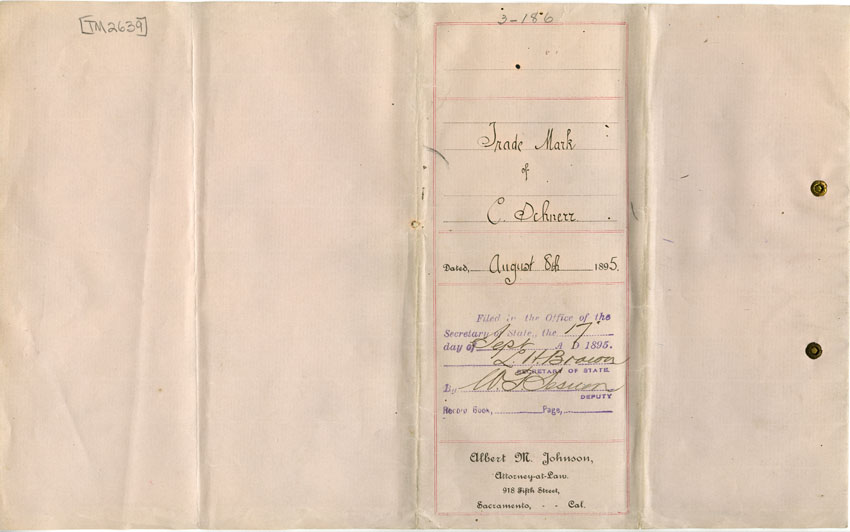 [TM2639]
3-186
Trade Mark
of
C. Schnerr.
Dated, August 8th 1895.
Filed in the Office of the
Secretary of State, the 17
day of Sept A D 1895.
L. H. Brown
SECRETARY OF STATE
By W. T. Sesnon
DEPUTY
Record Book, Page,
Albert M. Johnson,
Attorney-at-Law.
918 Fifth Street,
Sacramento, - - Cal.